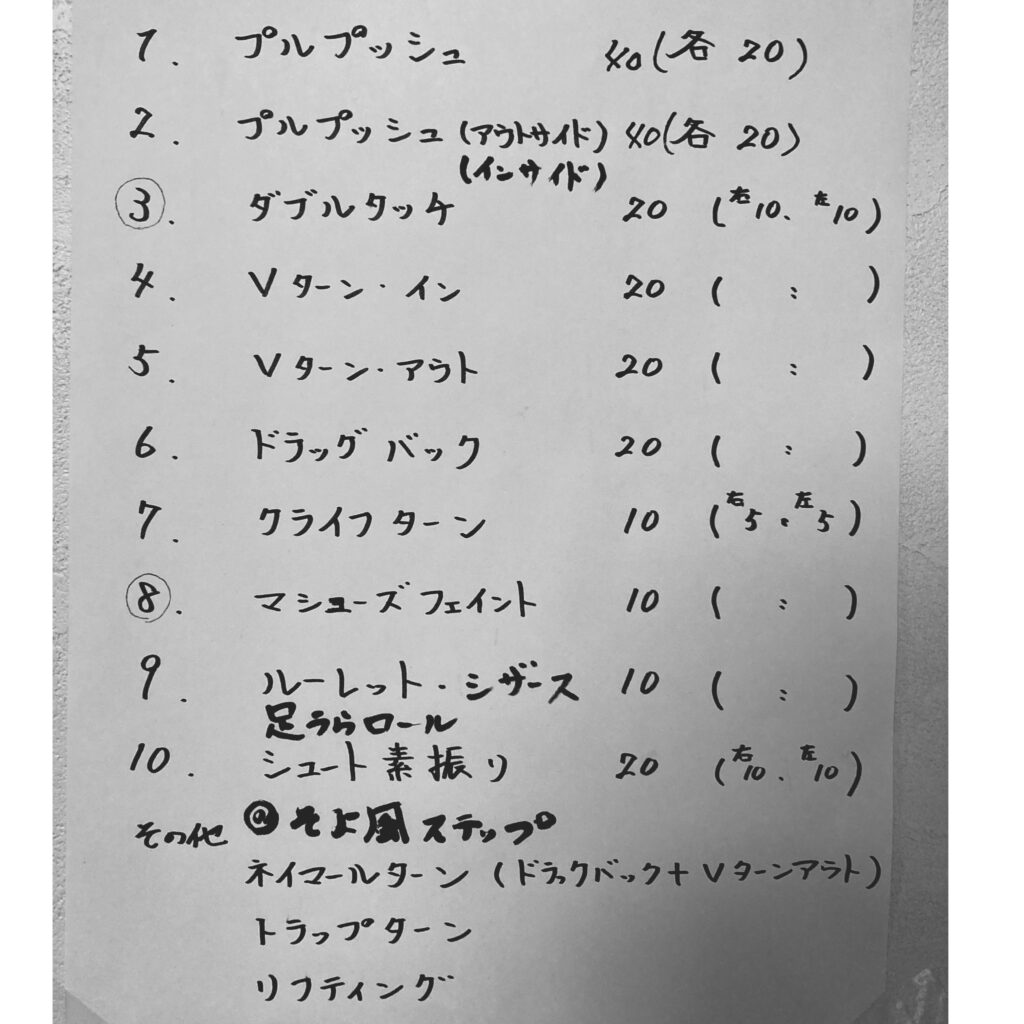 1. プルプッシュ 40(各 20)
2. プルプッシュ(アウトサイド) 40(各 20)
(インサイド)
③. ダブルタッチ 20 (右10、左10)
4. Vターン・イン 20 ( : )
5. Vターン・アウト 20 ( : )
6. ドラッグバック 20 ( : )
7. クライフターン 10 (右5・左5)
⑧. マシューズフェイント 10 ( : )
9. ルーレット・シザース 10 ( : )
足うらロール
10. シュート素振り 20 (右10、左10)
その他 @そよ風ステップ
ネイマールターン(ドラックバック+Vターンアウト)
トラップターン
リフティング